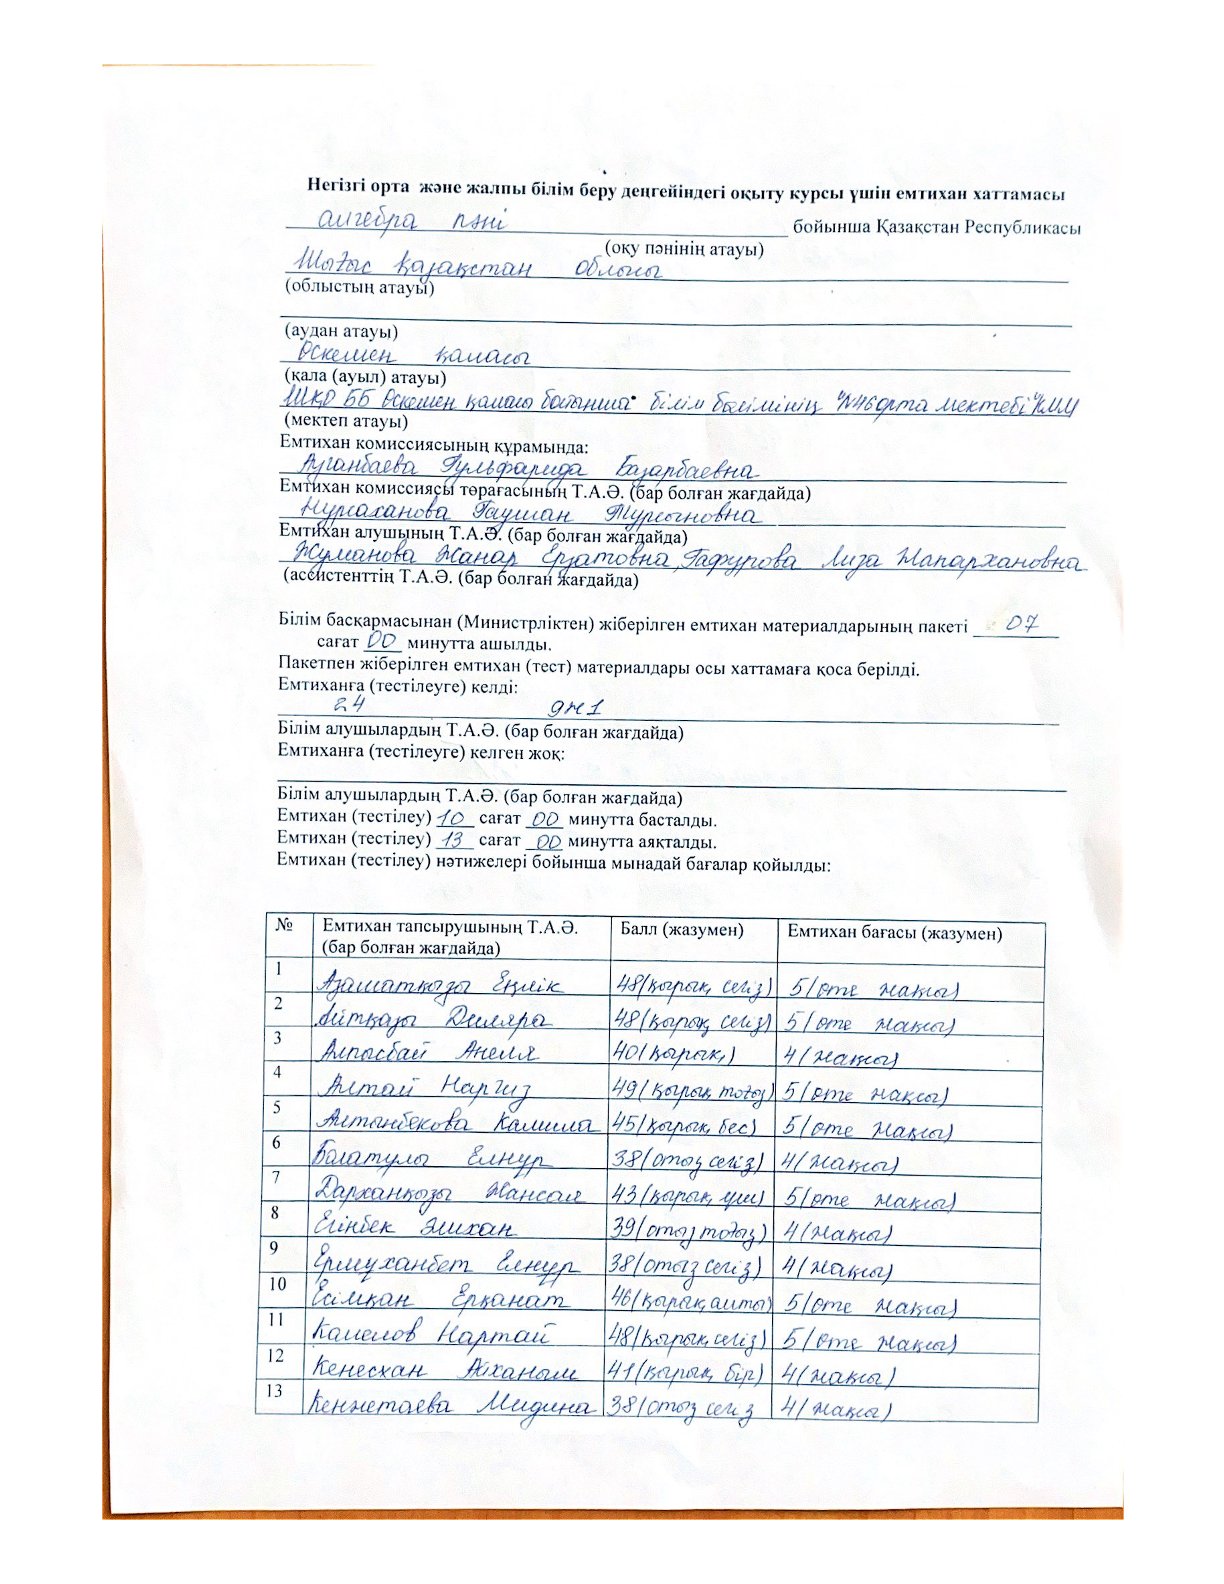 Негізгі орта және жалпы білім беру деңгейіндегі оқыту курсы үшін емтихан хаттамасы
алгебра пәні бойынша Қазақстан Республикасы
(оқу пәнінің атауы)
Шығыс Қазақстан облысы
(облыстың атауы)
(аудан атауы)
Өскемен қаласы
(қала (ауыл) атауы)
ШҚО ББ Өскемен қаласы бойынша білім бөлімінің "№46 орта мектебі" КММ
(мектеп атауы)
Емтихан комиссиясының құрамында:
Ауганбаева Гульфарида Базарбаевна
Емтихан комиссиясы төрағасының Т.А.Ә. (бар болған жағдайда)
Нурмаханова Гаушан Турсыновна
Емтихан алушының Т.А.Ә. (бар болған жағдайда)
Жуманова Жанар Ерзатовна, Гафурова Лиза Жапархановна
(ассистенттің Т.А.Ә. (бар болған жағдайда)
Білім басқармасынан (Министрліктен) жіберілген емтихан материалдарының пакеті 07
сағат 00 минутта ашылды.
Пакетпен жіберілген емтихан (тест) материалдары осы хаттамаға қоса берілді.
Емтиханға (тестілеуге) келді:
24
Білім алушылардың Т.А.Ә. (бар болған жағдайда)
Емтиханға (тестілеуге) келген жоқ:
Білім алушылардың Т.А.Ә. (бар болған жағдайда)
Емтихан (тестілеу) 10 сағат 00 минутта басталды.
Емтихан (тестілеу) 13 сағат 00 минутта аяқталды.
Емтихан (тестілеу) нәтижелері бойынша мынадай бағалар қойылды:
№ Емтихан тапсырушының Т.А.Ә. Балл (жазумен) Емтихан бағасы (жазумен)
(бар болған жағдайда)
1 Азаматқызы Еңлік 48(қырық сегіз) 5(өте жақсы)
2 Айтқазы Диляра 48(қырық сегіз) 5(өте жақсы)
3 Алпысбай Анеля 40(қырық) 4(жақсы)
4 Алтай Наргиз 49(қырық тоғыз) 5(өте жақсы)
5 Алтынбекова Камила 45(қырық бес) 5(өте жақсы)
6 Болатұлы Елнұр 38(отыз сегіз) 4(жақсы)
7 Дарханқызы Жансая 43(қырық үш) 5(өте жақсы)
8 Егінбек Әлихан 39(отыз тоғыз) 4(жақсы)
9 Ермуханбет Елнұр 38(отыз сегіз) 4(жақсы)
10 Есімқан Ерқанат 46(қырық алты) 5(өте жақсы)
11 Камелов Нартай 48(қырық сегіз) 5(өте жақсы)
12 Кенесхан Айханым 41(қырық бір) 4(жақсы)
13 Кенжетаева Мадина 38(отыз сегіз 4(жақсы)